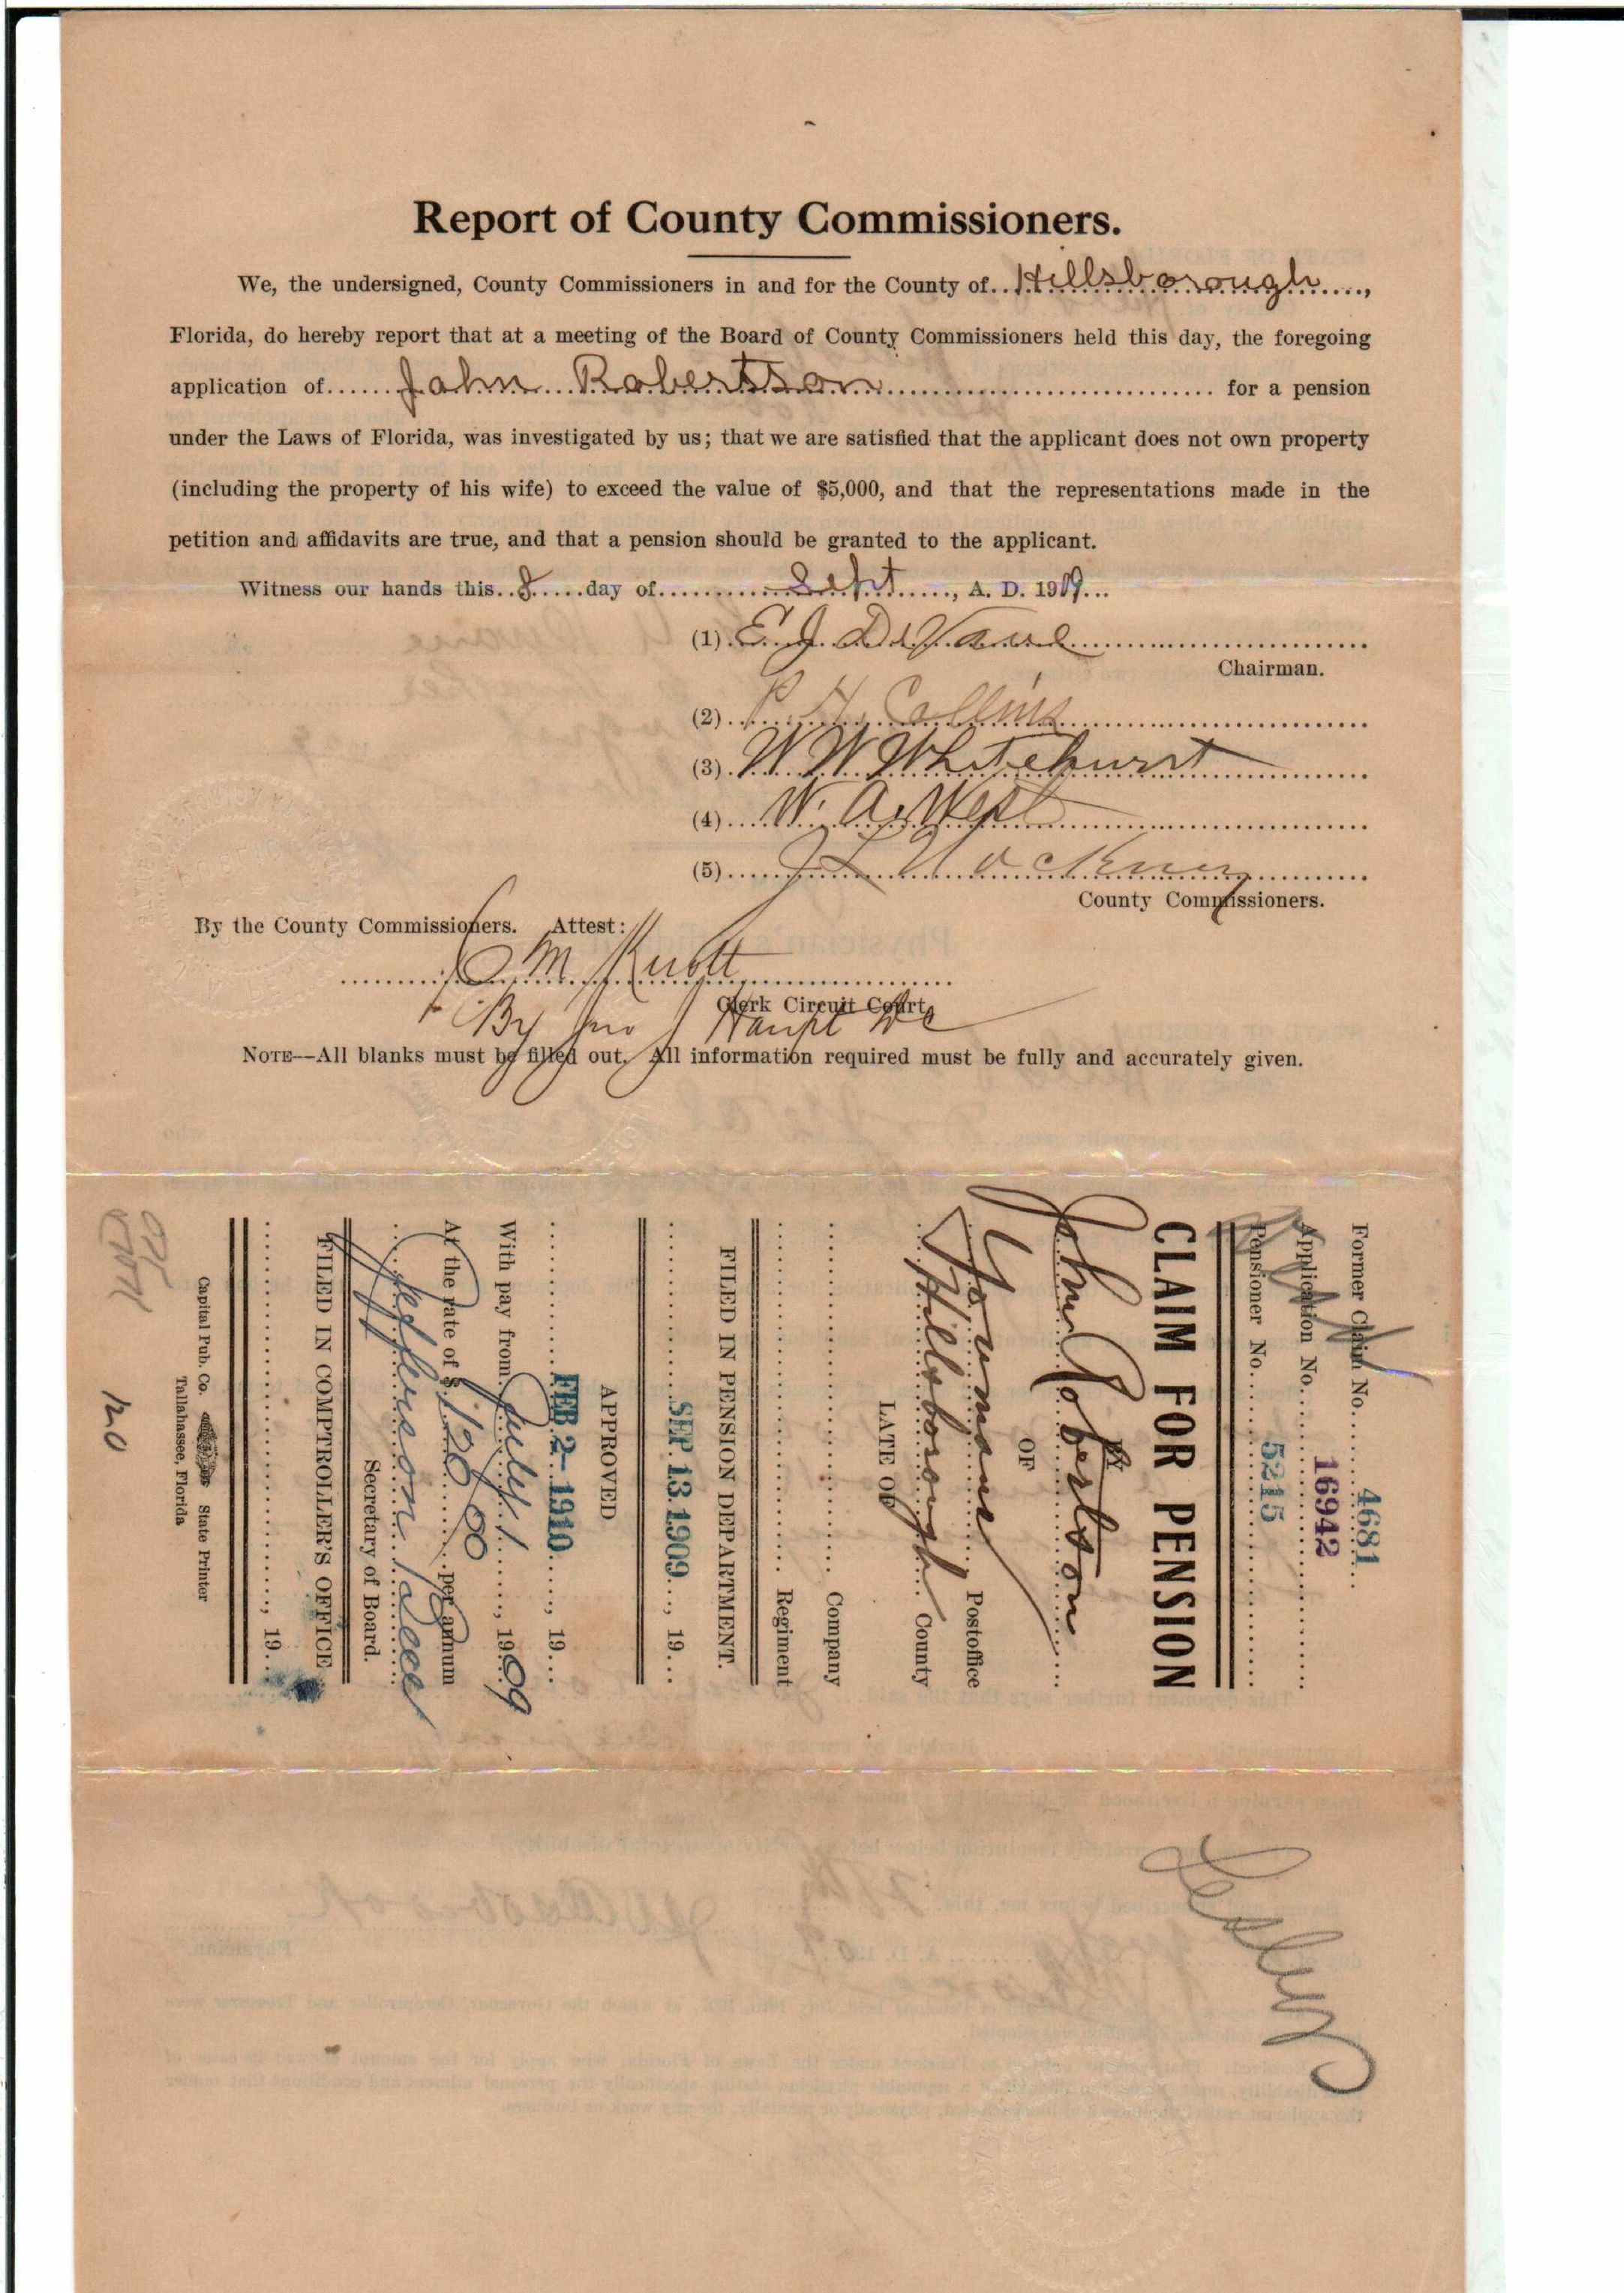 Report of County Commissioners.
We, the undersigned, County Commissioners in and for the County of Hillsborough,
Florida, do hereby report that at a meeting of the Board of County Commissioners held this day, the foregoing
application of John Robertson for a pension
under the Laws of Florida, was investigated by us; that we are satisfied that the applicant does not own property
(including the property of his wife) to exceed the value of $5,000, and that the representations made in the
petition and affidavits are true, and that a pension should be granted to the applicant.
Witness our hands this 8 day of Sept, A. D. 1909
(1) E J DeVane
Chairman.
(2) P H. Collins
(3) W W Whitehurst
(4) W. A. West
(5) J L
County Commissioners.
By the County Commissioners. Attest:
M Knott
Clerk Circuit Court.
By Jno Haupt DC
NOTE—All blanks must be filled out. All information required must be fully and accurately given.
Former Claim No. 4681
Application No. 16942
Pensioner No. 5215
CLAIM FOR PENSION
BY
John Robertson
OF
Youmans Postoffice
Hillsborough County
LATE OF
Company
Regiment
FILED IN PENSION DEPARTMENT.
SEP 13 1909, 19
APPROVED
FEB 2-1910, 19
With pay from July 1, 1909
At the rate of $ 120 00 per annum
Jefferson
Secretary of Board.
FILED IN COMPTROLLER'S OFFICE
, 19
Capital Pub. Co. State Printer
Tallahassee, Florida
120